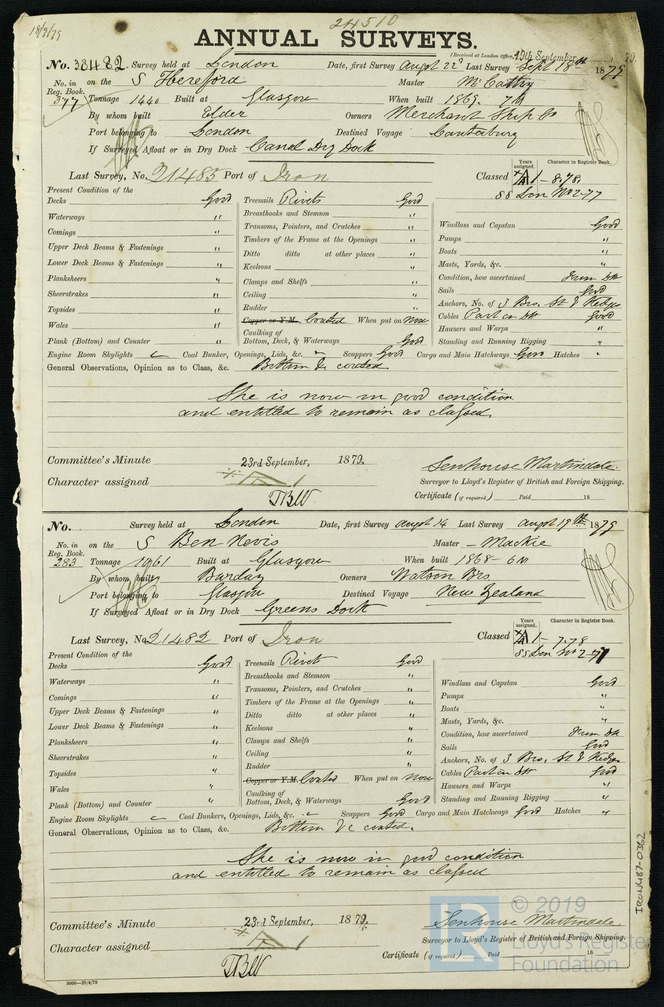 18/9/79
24510
ANNUAL SURVEYS.
(Received at London Office, 19th September, 79.
No. 38482. Survey held at London Date, first Survey Augst 22d Last Survey Septr 18th 1879
No. in Reg. Book. 377 on the S Hereford Master McCathy
Tonnage 1440 Built at Glasgow When built 1869. 7M
By whom built Elder Owners Merchant Ship Co
Port belonging to London Destined Voyage Canterbury
If Surveyed Afloat or in Dry Dock Canal Dry Dock
Last Survey, No. 21485 Port of Iron Classed A1 - 8.78.
Years assigned. Character in Register Book.
SS Lon No2-77
Present Condition of the
Decks Good Treenails Rivets Good
Waterways " Breasthooks and Stemson "
Comings " Transoms, Pointers, and Crutches " Windlass and Capstan Good
Upper Deck Beams & Fastenings " Timbers of the Frame at the Openings " Pumps "
Lower Deck Beams & Fastenings " Ditto ditto at other places " Boats "
Planksheers " Keelsons " Masts, Yards, &c. "
Sheerstrakes " Clamps and Shelfs " Condition, how ascertained From Dk
Topsides " Ceiling " Sails Good
Wales " Rudder " Anchors, No. of 3 Brs, St & Kedges
Plank (Bottom) and Counter " Copper or Y.M. Coated When put on Now Cables Part on Dk Good
Caulking of Bottom, Deck, & Waterways Good Hawsers and Warps "
Standing and Running Rigging "
Engine Room Skylights Coal Bunker, Openings, Lids, &c. Scuppers Good Cargo and Main Hatchways Good Hatches "
General Observations, Opinion as to Class, &c. Bottom &c coated.
She is now in good condition
and entitled to remain as classed.
Committee's Minute 23rd September, 1879.
Character assigned A1
TBW
Senhouse Martindale.
Surveyor to Lloyd's Register of British and Foreign Shipping.
Certificate (if required) Paid 18
No. Survey held at London Date, first Survey Augst 14 Last Survey Augst 19th 1879
No. in Reg. Book. 283 on the S Ben Nevis Master Mackie
Tonnage 1061 Built at Glasgow When built 1868 - 6M
By whom built Barclay Owners Watson Brs
Port belonging to Glasgow Destined Voyage New Zealand
If Surveyed Afloat or in Dry Dock Greens Dock
Last Survey, No. 21482 Port of Iron Classed A1 - 7.78
Years assigned. Character in Register Book.
SS Lon No2-77
Present Condition of the
Decks Good Treenails Rivets Good
Waterways " Breasthooks and Stemson "
Comings " Transoms, Pointers, and Crutches " Windlass and Capstan Good
Upper Deck Beams & Fastenings " Timbers of the Frame at the Openings " Pumps "
Lower Deck Beams & Fastenings " Ditto ditto at other places " Boats "
Planksheers " Keelsons " Masts, Yards, &c. "
Sheerstrakes " Clamps and Shelfs " Condition, how ascertained From Dk
Topsides " Ceiling " Sails Good
Wales " Rudder " Anchors, No. of 3 Brs, St & Kedges
Plank (Bottom) and Counter " Copper or Y.M. Coated When put on Now Cables Part on Dk Good
Caulking of Bottom, Deck, & Waterways Good Hawsers and Warps "
Standing and Running Rigging "
Engine Room Skylights Coal Bunkers, Openings, Lids, &c. Scuppers Good Cargo and Main Hatchways Good Hatches "
General Observations, Opinion as to Class, &c. Bottom &c coated.
She is now in good condition
and entitled to remain as classed
Committee's Minute 23rd September, 1879.
Character assigned A1
TBW
Senhouse Martindale
Surveyor to Lloyd's Register of British and Foreign Shipping.
Certificate (if required) Paid 18
IRON487-0362
© 2019
LR Lloyd's Register
Foundation